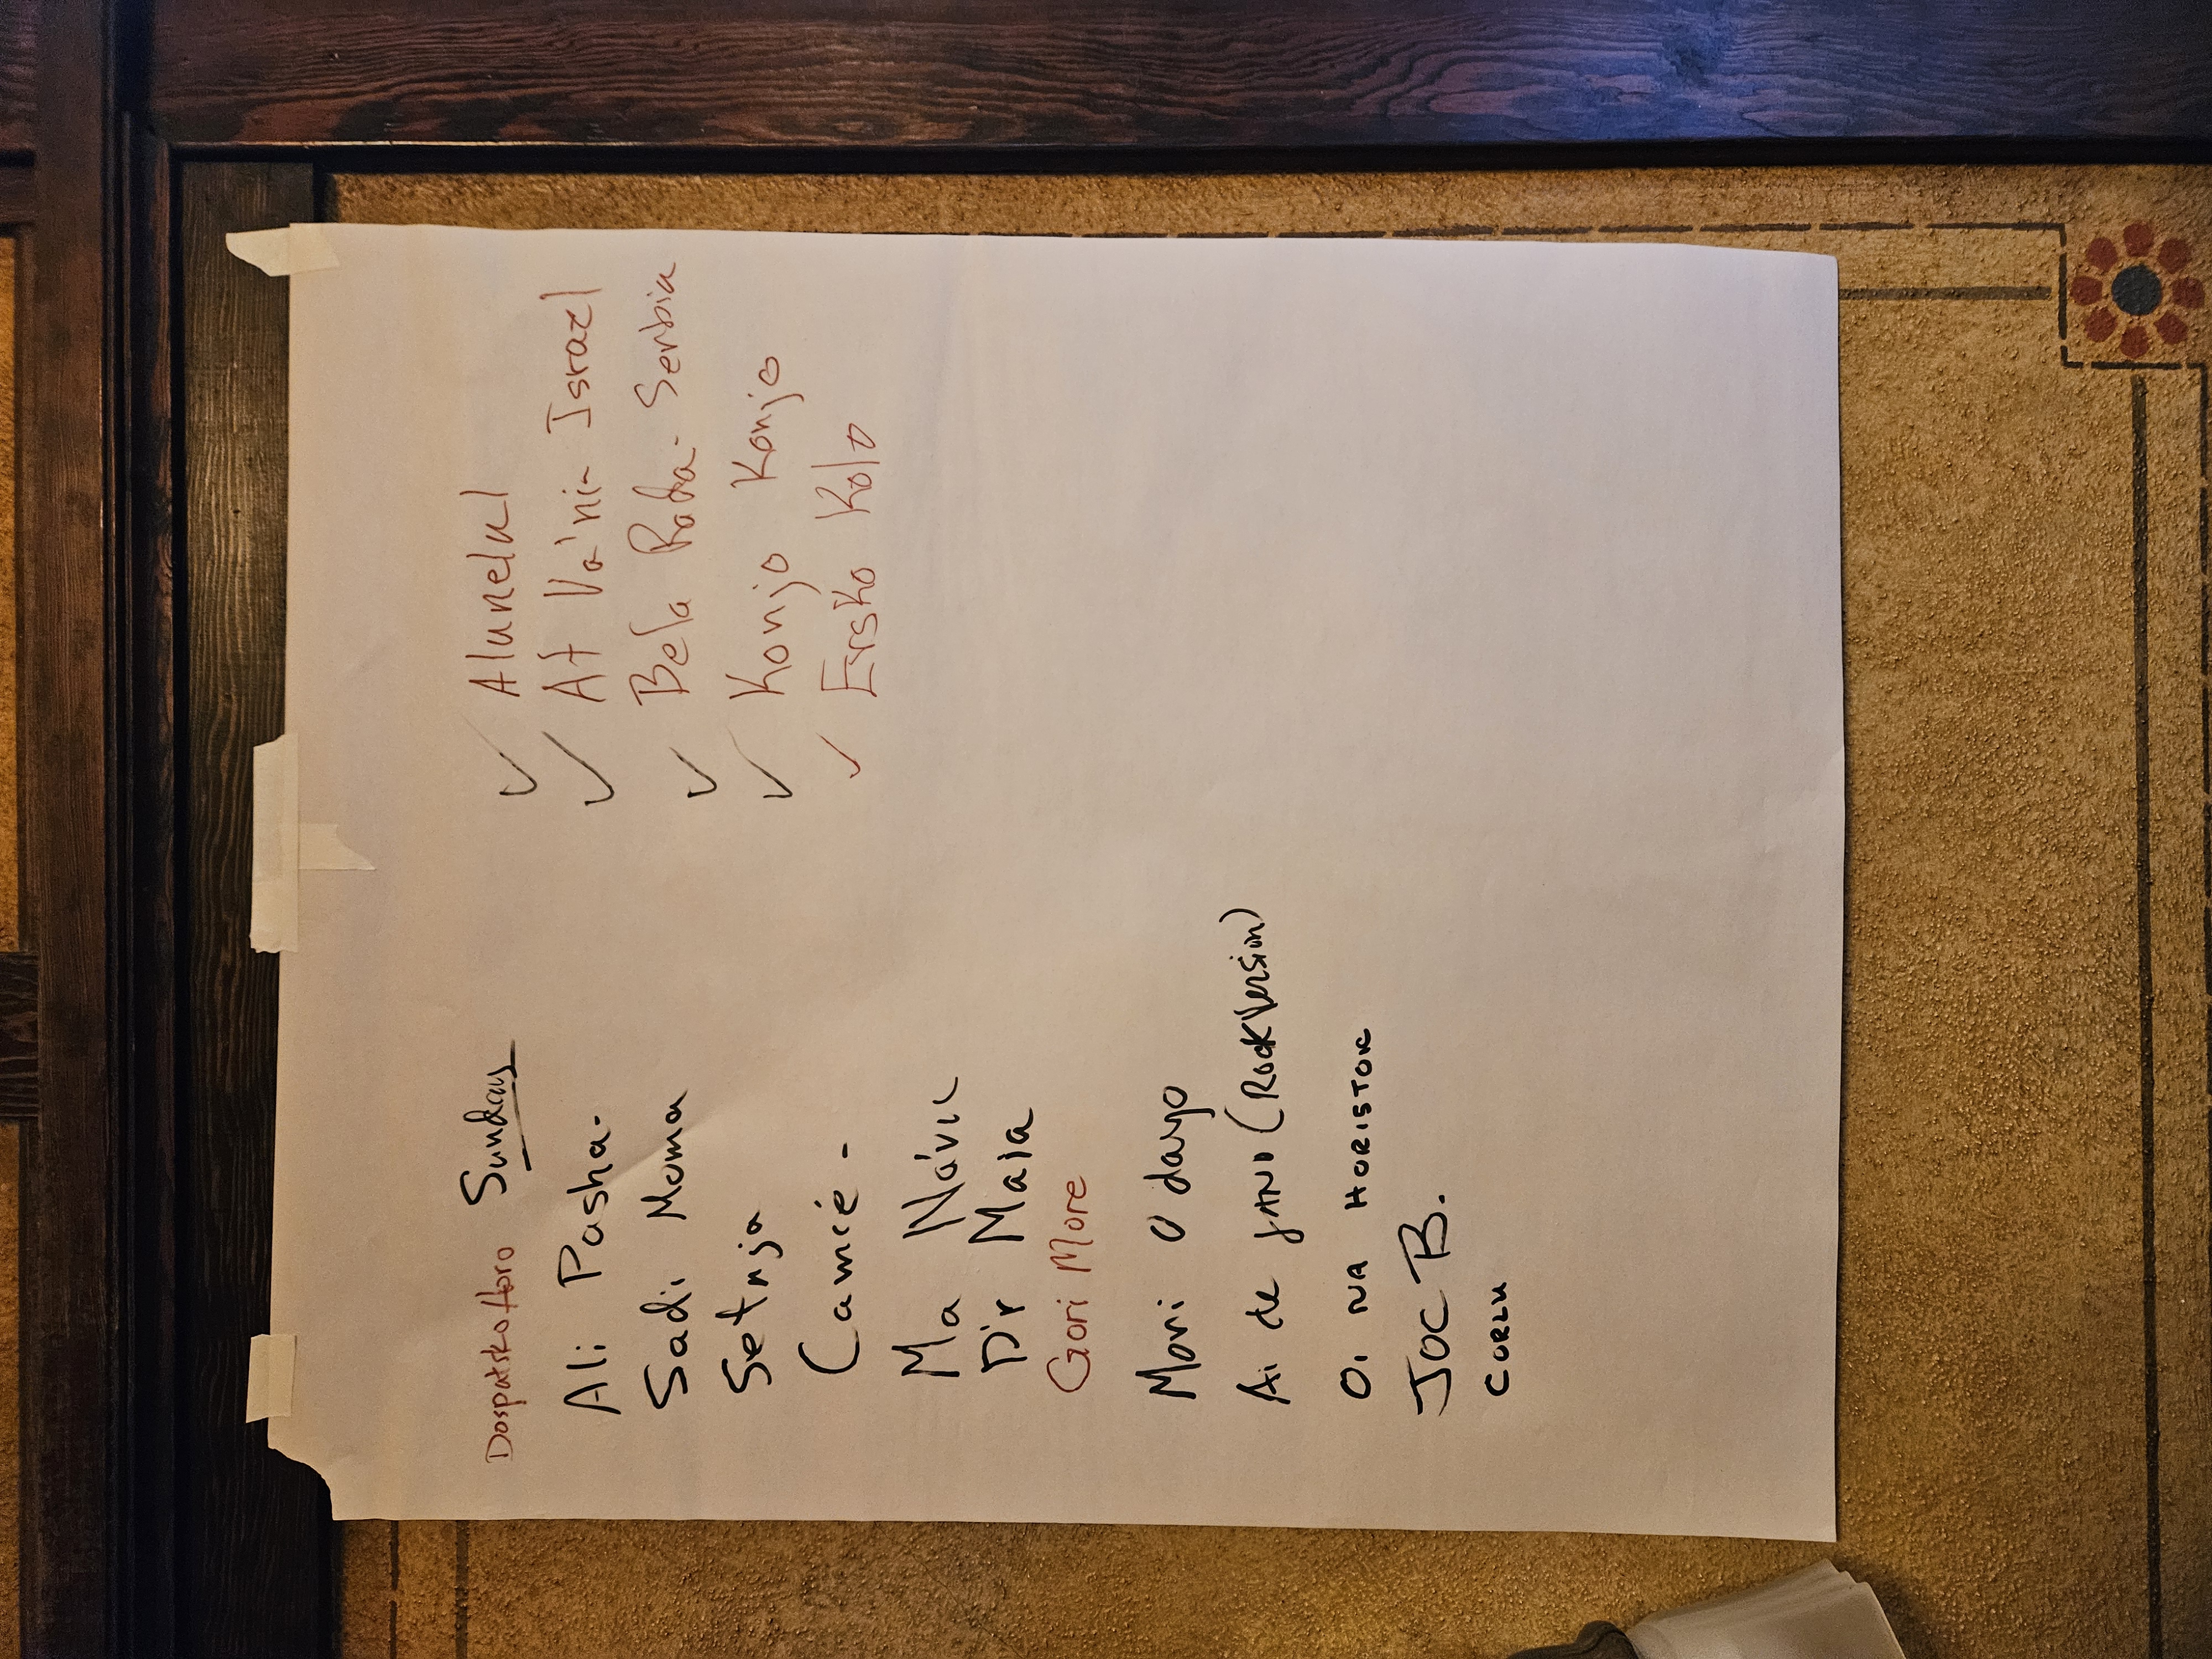 Sunday
Dospatsko Horo
Ali Pasha.
Sadi Moma
Setnja
Ma Návu
D'r Maia
Gori More
Mori O dayo
Ai de JANO (Rock Version)
Oi NA HORISTOK
JOC B.
CORLU
✓ Alunelul
✓ At Va'ni - Israel
✓ Bela Rada - Serbia
✓ Konjo Konjo
✓ Ersko Kolo